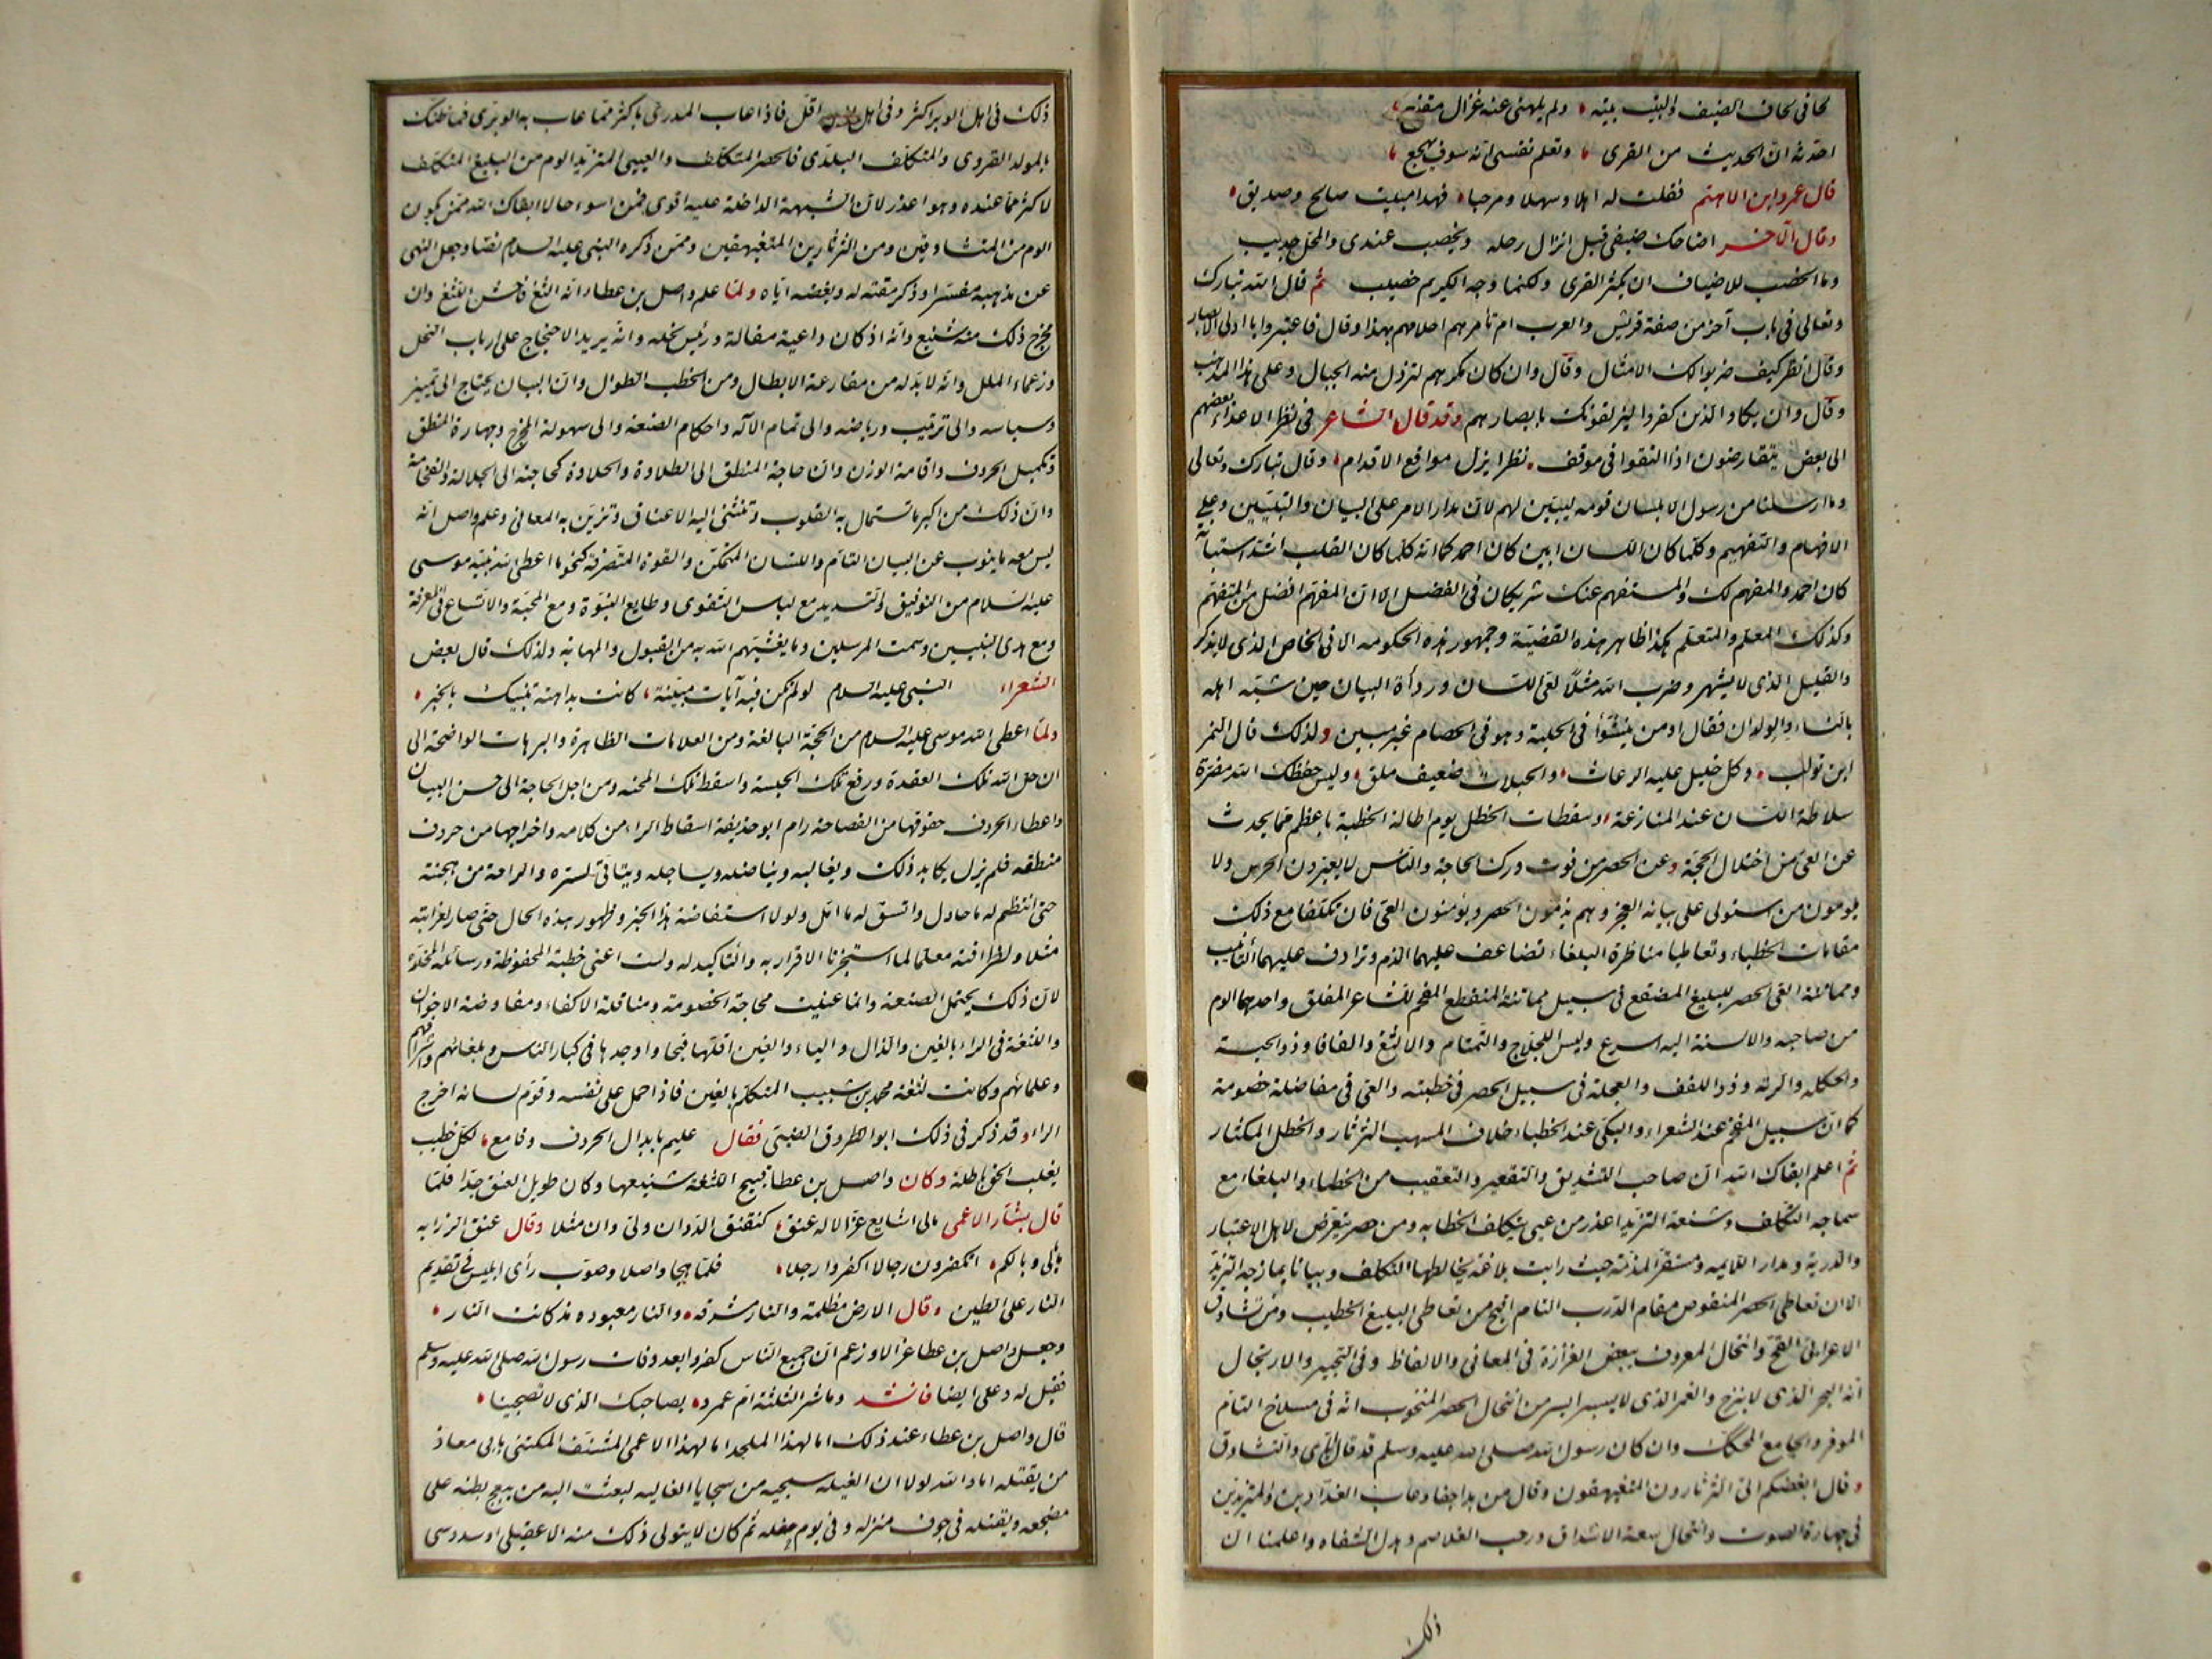 لحافى لحاف الضيف والبيت بيته ولم يلهنى عنه غزال مقنع
احدثه ان الحديث من القرى وتعلم نفسى انه سوف يهجع
قال عمرو ابن الاهتم فقلت له اهلا وسهلا ومرحبا فهذا مبيت صالح وصديق
وقال الآخر اضاحك ضيفى قبل انزال رحله ويخصب عندى والمحل جديب
وما الخصب للاضياف ان يكثر القرى ولكنما وجه الكريم خصيب ثم قال الله تبارك
وتعالى فى باب آخر من صفة قريش والعرب ام تأمرهم احلامهم بهذا وقال فاعتبروا يا اولى الابصار
وقال انظر كيف ضربوا لك الامثال وقال وان كان مكرهم لتزول منه الجبال وعلى هذا المذهب
وقال وان يكاد الذين كفروا ليزلقونك بابصارهم وقد قال الشاعر فى نظر الاعداء بعضهم
الى بعض يتقارضون اذا التقوا فى موقف نظرا يزل مواقع الاقدام وقال تبارك وتعالى
وما ارسلنا من رسول الا بلسان قومه ليبين لهم لان مدار الامر على البيان والتبيين وعلى
الافهام والتفهيم وكلما كان اللسان ابين كان احمد كما انه كلما كان القلب اشد استبانة
كان احمد والمفهم لك والمستفهم عنك شريكان فى الفضل الا ان المفهم افضل من المتفهم
وكذلك المعلم والمتعلم هكذا ظاهر هذه القضية وجمهور هذه الحكومه الا فى الخاص الذى لا يذكر
والقليل الذى لا يشهر وضرب الله مثلا لعى اللسان ورداءة البيان حين شبه اهله
بالنساء والولدان فقال اومن ينشؤا فى الحلية وهو فى الخصام غير مبين ولذلك قال النمر
ابن تولب وكل خليل عليه الرعاث والحبلات ضعيف ملق وليس حفظك الله مضرة
سلاطة اللسان عند المنازعة وسقطات الخطل يوم اطالة الخطبة باعظم مما يحدث
عن العى من اختلال الحجة وعن الحصر من فوت درك الحاجة والناس لا يعيرون الخرس ولا
يلومون من استولى على بيانه العجز وهم يذمون الحصر ويؤنبون العى فان تكلفا مع ذلك
مقامات الخطباء وتعاطيا مناظرة البلغاء تضاعف عليهما الذم وترادف عليهما التأنيب
ومماتنة العى الحصر للبليغ المصقع فى سبيل مماتنة المنقطع المفحم للشاعر المفلق واحدهما الوم
من صاحبه والالسنة اليه اسرع وليس اللجلاج والتمتام والالثغ والفافا وذو الحبسة
والحكله والرته وذو اللفف والعجلة فى سبيل الحصر فى خطبته والعى فى مفاضلة خصومة
كما ان سبيل المفحم عند الشعراء والبكى عند الخطباء خلاف المسهب الثرثار والخطل المكثار
ثم اعلم ابقاك الله ان صاحب التشديق والتقعير والتعقيب من الخطباء والبلغاء مع
سماجه التكلف وشنعة التزيد اعذر من عيى يتكلف الخطابه ومن حصر يتعرض لاهل الاعتبار
والدربة ومدار اللايمه ومستقر المذمة حيث رايت بلاغة يخالطها التكلف وبيانا يمازجه التزيد
الا ان تعاطى الحصر المنقوص مقام الدرب التام اقبح من تعاطى البليغ الخطيب ومن تشادق
الاعرابى القح وانتحال المعروف ببعض الغزارة فى المعانى والالفاظ وفى التحبير والارتجال
انه البحر الذى لا ينزح والغمر الذى لا يسبر ايسر من انتحال الحصر المنخوب انه فى مسلاخ التام
الموفر والجامع المحكك وان كان رسول الله صلى الله عليه وسلم قد قال اياى والتشادق
وقال ابغضكم الى الثرثارون المتفيهقون وقال من بدا جفا وعاب الفدادين والمتزيدين
فى جهارة الصوت وانتحال سعة الاشداق ورحب الغلاصم وهدل الشفاه واعلمنا ان
ذلك
ذلك فى اهل الوبر اكثر وفى اهل اقل فاذا عاب المدرى باكثر مما عاب به الوبرى فما ظنك
بالمولد القروى والمتكلف البلدى فالحصر المتكلف والعيى المتزيد الوم من البليغ المتكلف
لاكثر مما عنده وهو اعذر لان الشبهة الداخلة عليه اقوى فمن اسوء حالا ابقاك الله ممن يكون
الوم من المتشادقين ومن الثرثارين المتفيهقين وممن ذكره النبى عليه السلام نصا وجعل النهى
عن مذهبه مفسرا وذكر مقته له وبغضه اياه ولما علم واصل بن عطاء انه الثغ فاحش اللثغ وان
مخرج ذلك منه شنيع وانه اذ كان داعية مقالة ورئيس نحله وانه يريد الاحتجاج على ارباب النحل
وزعماء الملل وانه لا بد له من مقارعة الابطال ومن الخطب الطوال وان البيان يحتاج الى تمييز
وسياسه والى ترتيب ورياضه والى تمام الآله واحكام الصنعه والى سهولة المخرج وجهارة المنطق
وتكميل الحروف واقامة الوزن وان حاجة المنطق الى الطلاوة والحلاوة كحاجته الى الجلالة والفخامة
وان ذلك من اكبر ما تستمال به القلوب وتنثنى اليه الاعناق وتزين به المعانى وعلم واصل انه
ليس معه ما ينوب عن البيان التام واللسان المتمكن والقوة المتصرفة كنحو ما اعطى الله نبيه موسى
عليه السلام من التوفيق والتسديد مع لباس التقوى وطابع النبوة ومع المحبة والاتساع فى المعرفة
ومع هدى النبيين وسمت المرسلين وما يغشيهم الله به من القبول والمهابه ولذلك قال بعض
الشعراء النبى عليه السلام لو لم تكن فيه آيات مبينة كانت بداهته تنبيك بالخبر
ولما اعطى الله موسى عليه السلام من الحجة البالغة ومن العلامات الظاهرة والبرهات الواضحة الى
ان حل الله تلك العقدة ورفع تلك الحبسة واسقط تلك المحنه ومن اجل الحاجة الى حسن البيان
واعطاء الحروف حقوقها من الفصاحة رام ابو حذيفة اسقاط الراء من كلامه واخراجها من حروف
منطقه فلم يزل يكابد ذلك ويغالبه ويناضله ويساجله ويتاتى لستره والراحة من هجنته
حتى انتظم له ما حاول واتسق له ما امل ولولا استفاضة هذا الخبر وظهور هذه الحال حتى صار لغرابته
مثلا ولظرافته معلما لما استجزنا الاقرار به والتاكيد له ولست اعنى خطبة المحفوظة ورسائله المخلدة
لان ذلك يحتمل الصنعه وانما عنيت محاجة الخصومة ومناقلة الاكفاء ومفاوضة الاخوان
واللثغة فى الراء بالغين والذال والياء والغين اقلها قبحا واوجدها فى كبار الناس وبلغائهم واشرافهم
وعلمائهم وكانت لثغة محمد بن شبيب المتكلم بالغين فاذا حمل على نفسه وقوم لسانه اخرج
الراء وقد ذكر فى ذلك ابو الطروق الضبى فقال عليم بابدال الحروف وقامع لكل خطيب
يغلب الحق باطله وكان واصل بن عطا قبيح اللثغة شنيعها وكان طويل العنق جدا فلما
قال بشار الاعمى مالى اشايع غزالا له عنق كنقنق الدوان ولى وان مثلا وقال عنق الزرابه
مالى وبالكم اتكفرون رجالا اكفروا رجلا فلما هجا واصلا وصوب رأى ابليس فى تقديم
النار على الطين وقال الارض مظلمة والنار مشرقه والنار معبوده مذ كانت النار
وجعل واصل بن عطا غزالا وزعم ان جميع الناس كفروا بعد وفات رسول الله صلى الله عليه وسلم
فقيل له وعلى ايضا فانشد وما شر الثلثة ام عمرو بصاحبك الذى لا تصبحينا
قال واصل بن عطاء عند ذلك اما لهذا الملحد اما لهذا الاعمى المشنف المكتنى بابى معاذ
من يقتله اما والله لولا ان الغيله سجيه من سجايا الغاليه لبعثت اليه من يبعج بطنه على
مضجعه ويقتله فى جوف منزله وفى يوم حفله ثم كان لا يتولى ذلك منه الا عقيلى او سدوسى